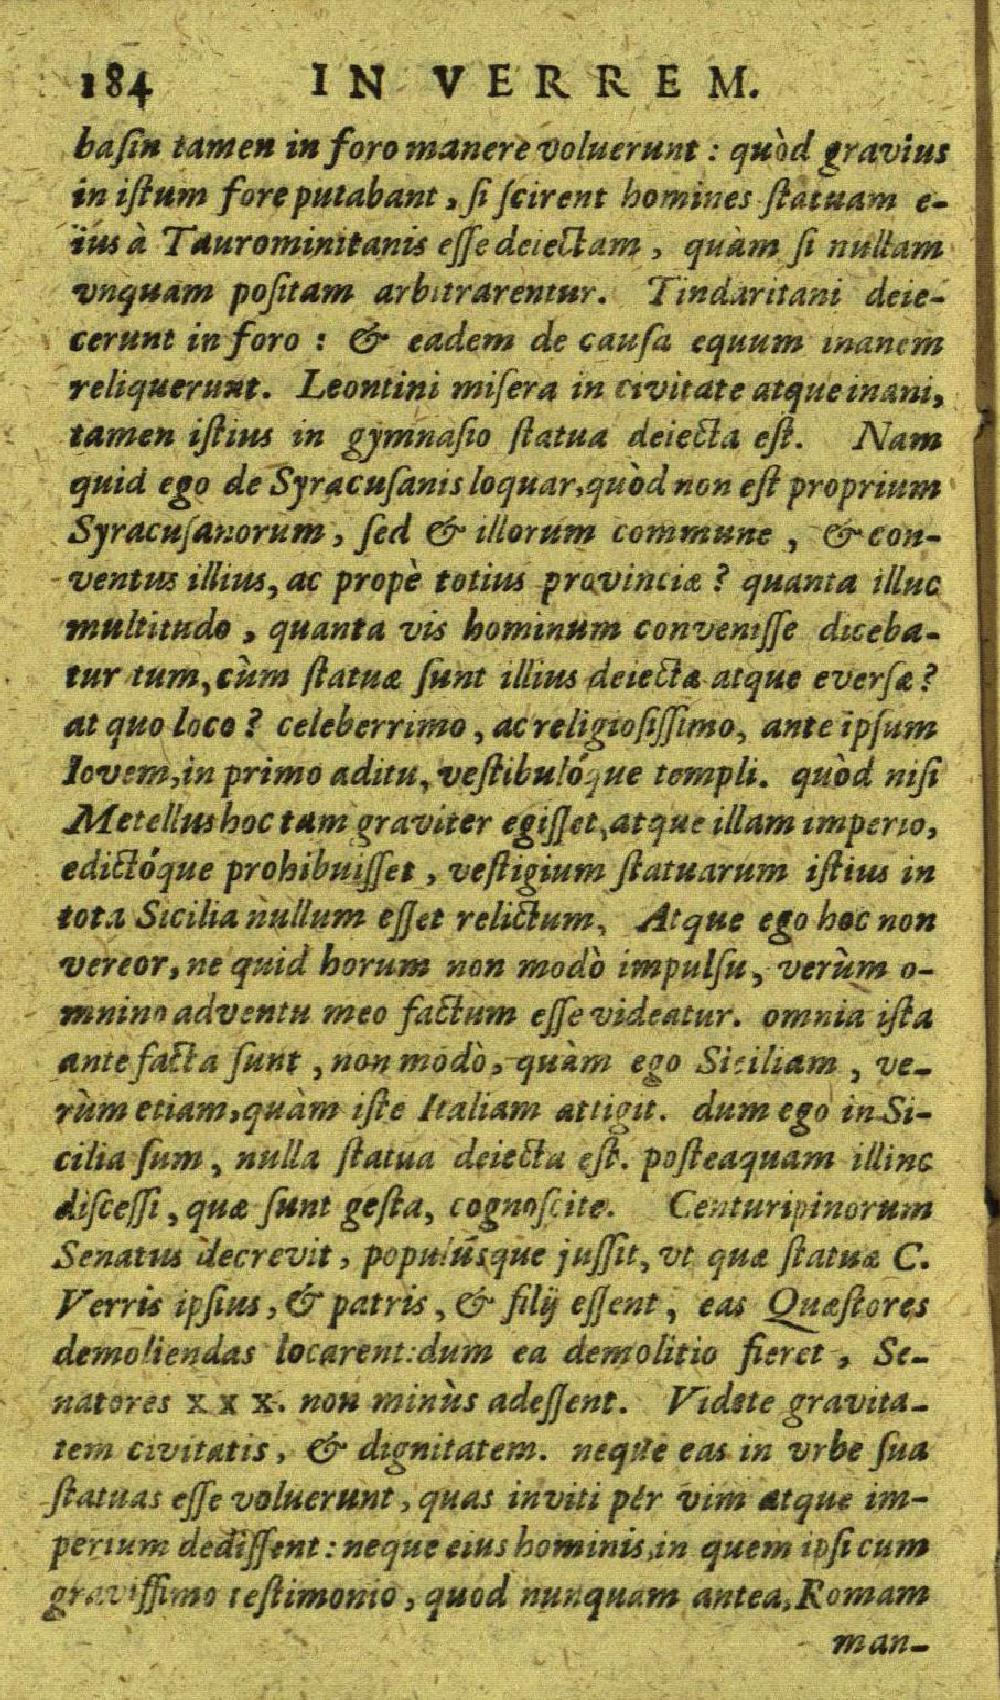 184 IN VERREM.
basin tamen in foro manere voluerunt : quòd gravius
in istum fore putabant, si scirent homines statuam e-
ius à Taurominitanis esse deiectam, quàm si nullam
vnquam positam arbitrarentur. Tindaritani deie-
cerunt in foro : & eadem de causa equum inanem
reliquerunt. Leontini misera in civitate atque inani,
tamen istius in gymnasio statua deiecta est. Nam
quid ego de Syracusanis loquar, quòd non est proprium
Syracusanorum, sed & illorum commune, & con-
ventus illius, ac propè totius provinciæ? quanta illuc
multitudo, quanta vis hominum convenisse diceba-
tur tum, cùm statuæ sunt illius deiectæ atque eversæ?
at quo loco? celeberrimo, ac religiosissimo, ante ipsum
Iovem, in primo aditu, vestibulóque templi. quòd nisi
Metellus hoc tam graviter egisset, atque illam imperio,
edictóque prohibuisset, vestigium statuarum istius in
tota Sicilia nullum esset relictum. Atque ego hoc non
vereor, ne quid horum non modò impulsu, verùm o-
mnino adventu meo factum esse videatur. omnia ista
ante facta sunt, non modò, quàm ego Siciliam, ve-
rùm etiam, quàm iste Italiam attigit. dum ego in Si-
cilia sum, nulla statua deiecta est. posteaquam illinc
discessi, quæ sunt gesta, cognoscite. Centuripinorum
Senatus decrevit, populúsque jussit, vt quæ statuæ C.
Verris ipsius, & patris, & filij essent, eas Quæstores
demoliendas locarent: dum ea demolitio fieret, Se-
natores xxx. non minùs adessent. Videte gravita-
tem civitatis, & dignitatem. neque eas in vrbe sua
statuas esse voluerunt, quas inviti per vim atque im-
perium dedissent: neque eius hominis, in quem ipsi cum
gravissimo testimonio, quod nunquam antea, Romam
man-